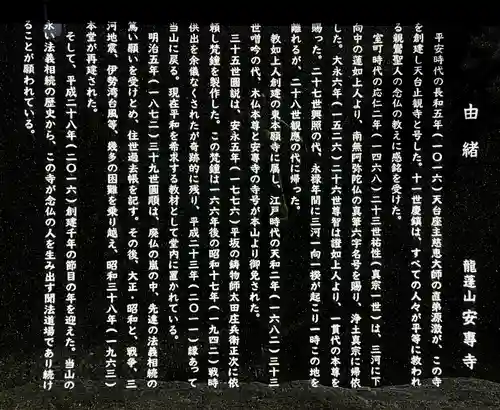 由緒
龍蓬山 安專寺
平安時代の長和五年（一〇一六）天台座主慈恵大師の直弟源激が、この寺
を創建し天台正観寺と号した。十一世慶鎮は、すべての人々が平等に救われ
る親鸞聖人の念仏の教えに感銘を受けた。
室町時代の応仁二年（一四六八）二十三世祐性（真宗一世）は、三河に下
向中の蓮如上人より、南無阿弥陀仏の真筆六字名号を賜り、浄土真宗に帰依
した。大永六年（一五二六）二十六世尊智は證如上人より、一貫代の本尊を
賜った。二十七世興照の代、永禄年間に三河一向一揆が起こり一時この地を
離れるが、二十八世観應の代に帰った。
教如上人創建の東本願寺に属し、江戸時代の天和二年（一六八二）三十三
世噌吟の代、木仏本尊と安專寺の寺号が本山より御免された。
三十五世圓説は、安永五年（一七七六）平坂の鋳物師太田庄兵衛正次に依
頼し梵鐘を製作した。この梵鐘は一六六年後の昭和十七年（一九四二）戦時
供出を余儀なくされたが奇跡的に残り、平成二十三年（二〇一一）縁あって
当山に戻る。現在平和を希求する教材として堂内に置かれている。
明治五年（一八七二）三十九世圓順は、廃仏の嵐の中、先達の法義相続の
篤い願いを受けとめ、住世過去帳を記す。その後、大正・昭和と、戦争、三
河地震、伊勢湾台風等、幾多の困難を乗り越え、昭和三十八年（一九六三）
本堂が再建された。
そして、平成二十八年（二〇一六）創建千年の節目の年を迎えた。当山の
永い法義相続の歴史から、この寺が念仏の人を生み出す聞法道場であり続け
ることが願われている。